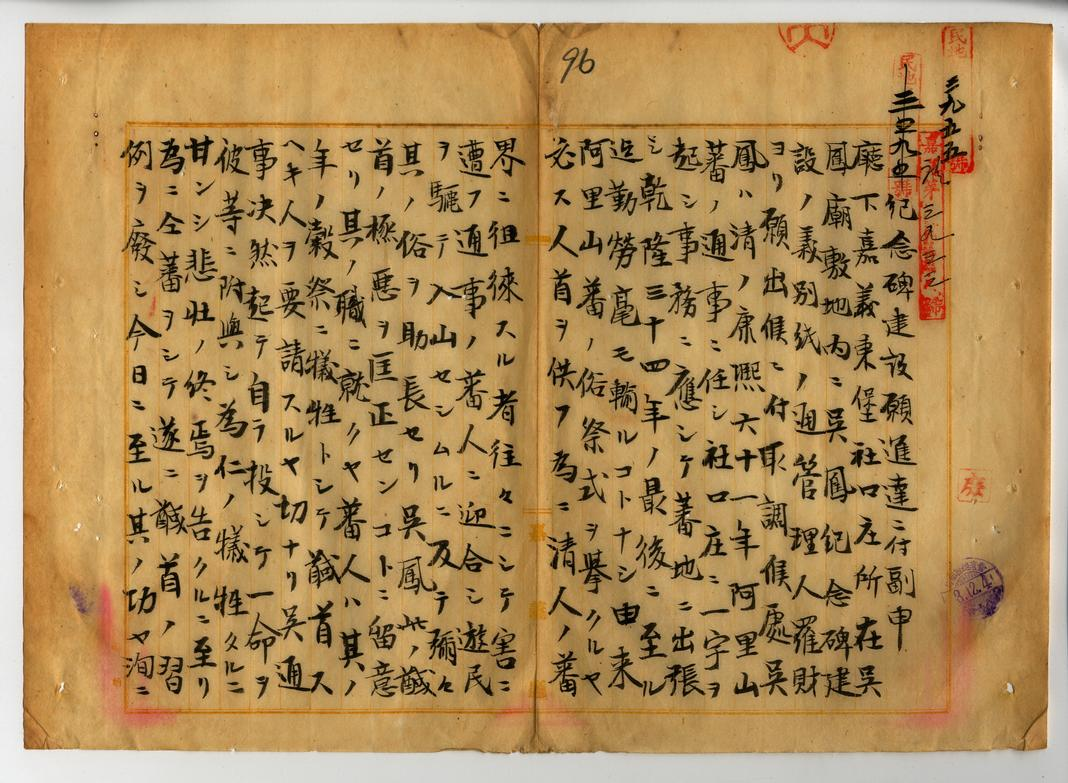 96
民地
民地
三九五五號
三三九三
紀念碑建設願進達ニ付副申
廳下嘉義東堡社口庄所在吳
鳳廟敷地內ニ吳鳳紀念碑建
設ノ義別紙ノ通管理人羅財
ヨリ願出候ニ付取調候處吳
鳳ハ清ノ康熙六十一年阿里山
蕃ノ通事ニ任シ社口庄ニ一宇ヲ
起シ事務ニ應シテ蕃地ニ出張
シ乾隆三十四年ノ最後ニ至ル
迄勤勞毫モ輸ルコトナシ由来
阿里山蕃ノ俗祭式ヲ擧クルヤ
必ス人首ヲ供フ為ニ清人ノ蕃
界ニ徂徠スル者往々ニシテ害ニ
遭フ通事ノ蕃人ニ迎合シ遊民
ヲ驅テ入山セシムルニ及テ彌々
其ノ俗ヲ助長セリ吳鳳此ノ馘
首ノ極惡ヲ匡正センコトニ留意
セリ其ノ職ニ就クヤ蕃人ハ其ノ
年ノ穀祭ニ犠牲トシテ馘首ス
ヘキ人ヲ要請スルヤ切ナリ吳通
事決然起テ自ラ投シテ一命ヲ
彼等ニ附與シ為仁ノ犠牲タルニ
甘ンシ悲壮ノ終焉ヲ告クルニ至リ
為ニ仝蕃ヲシテ遂ニ馘首ノ習
例ヲ廢シ今日ニ至ル其ノ功ヤ洵ニ